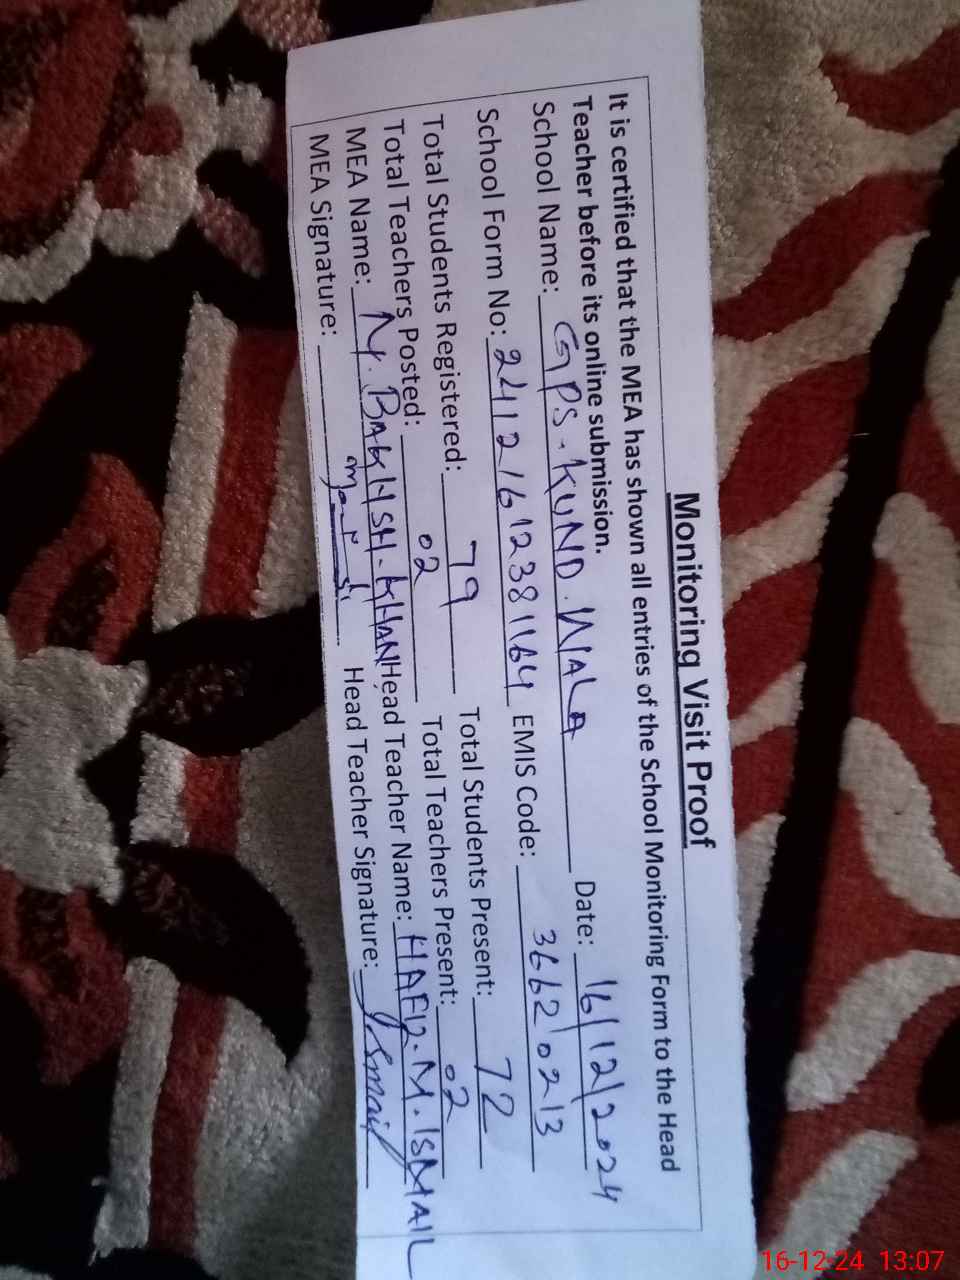 Monitoring Visit Proof
It is certified that the MEA has shown all entries of the School Monitoring Form to the Head
Teacher before its online submission.
School Name: GPS. KUND. WALA Date: 16/12/2024
School Form No: 24121612381164 EMIS Code: 36620213
Total Students Registered: 79 Total Students Present: 72
Total Teachers Posted: 02 Total Teachers Present: 02
MEA Name: M. BAKHSH. KHAN Head Teacher Name: HAFIZ. M. ISMAIL
MEA Signature: Head Teacher Signature: Ismail
16-12-24 13:07